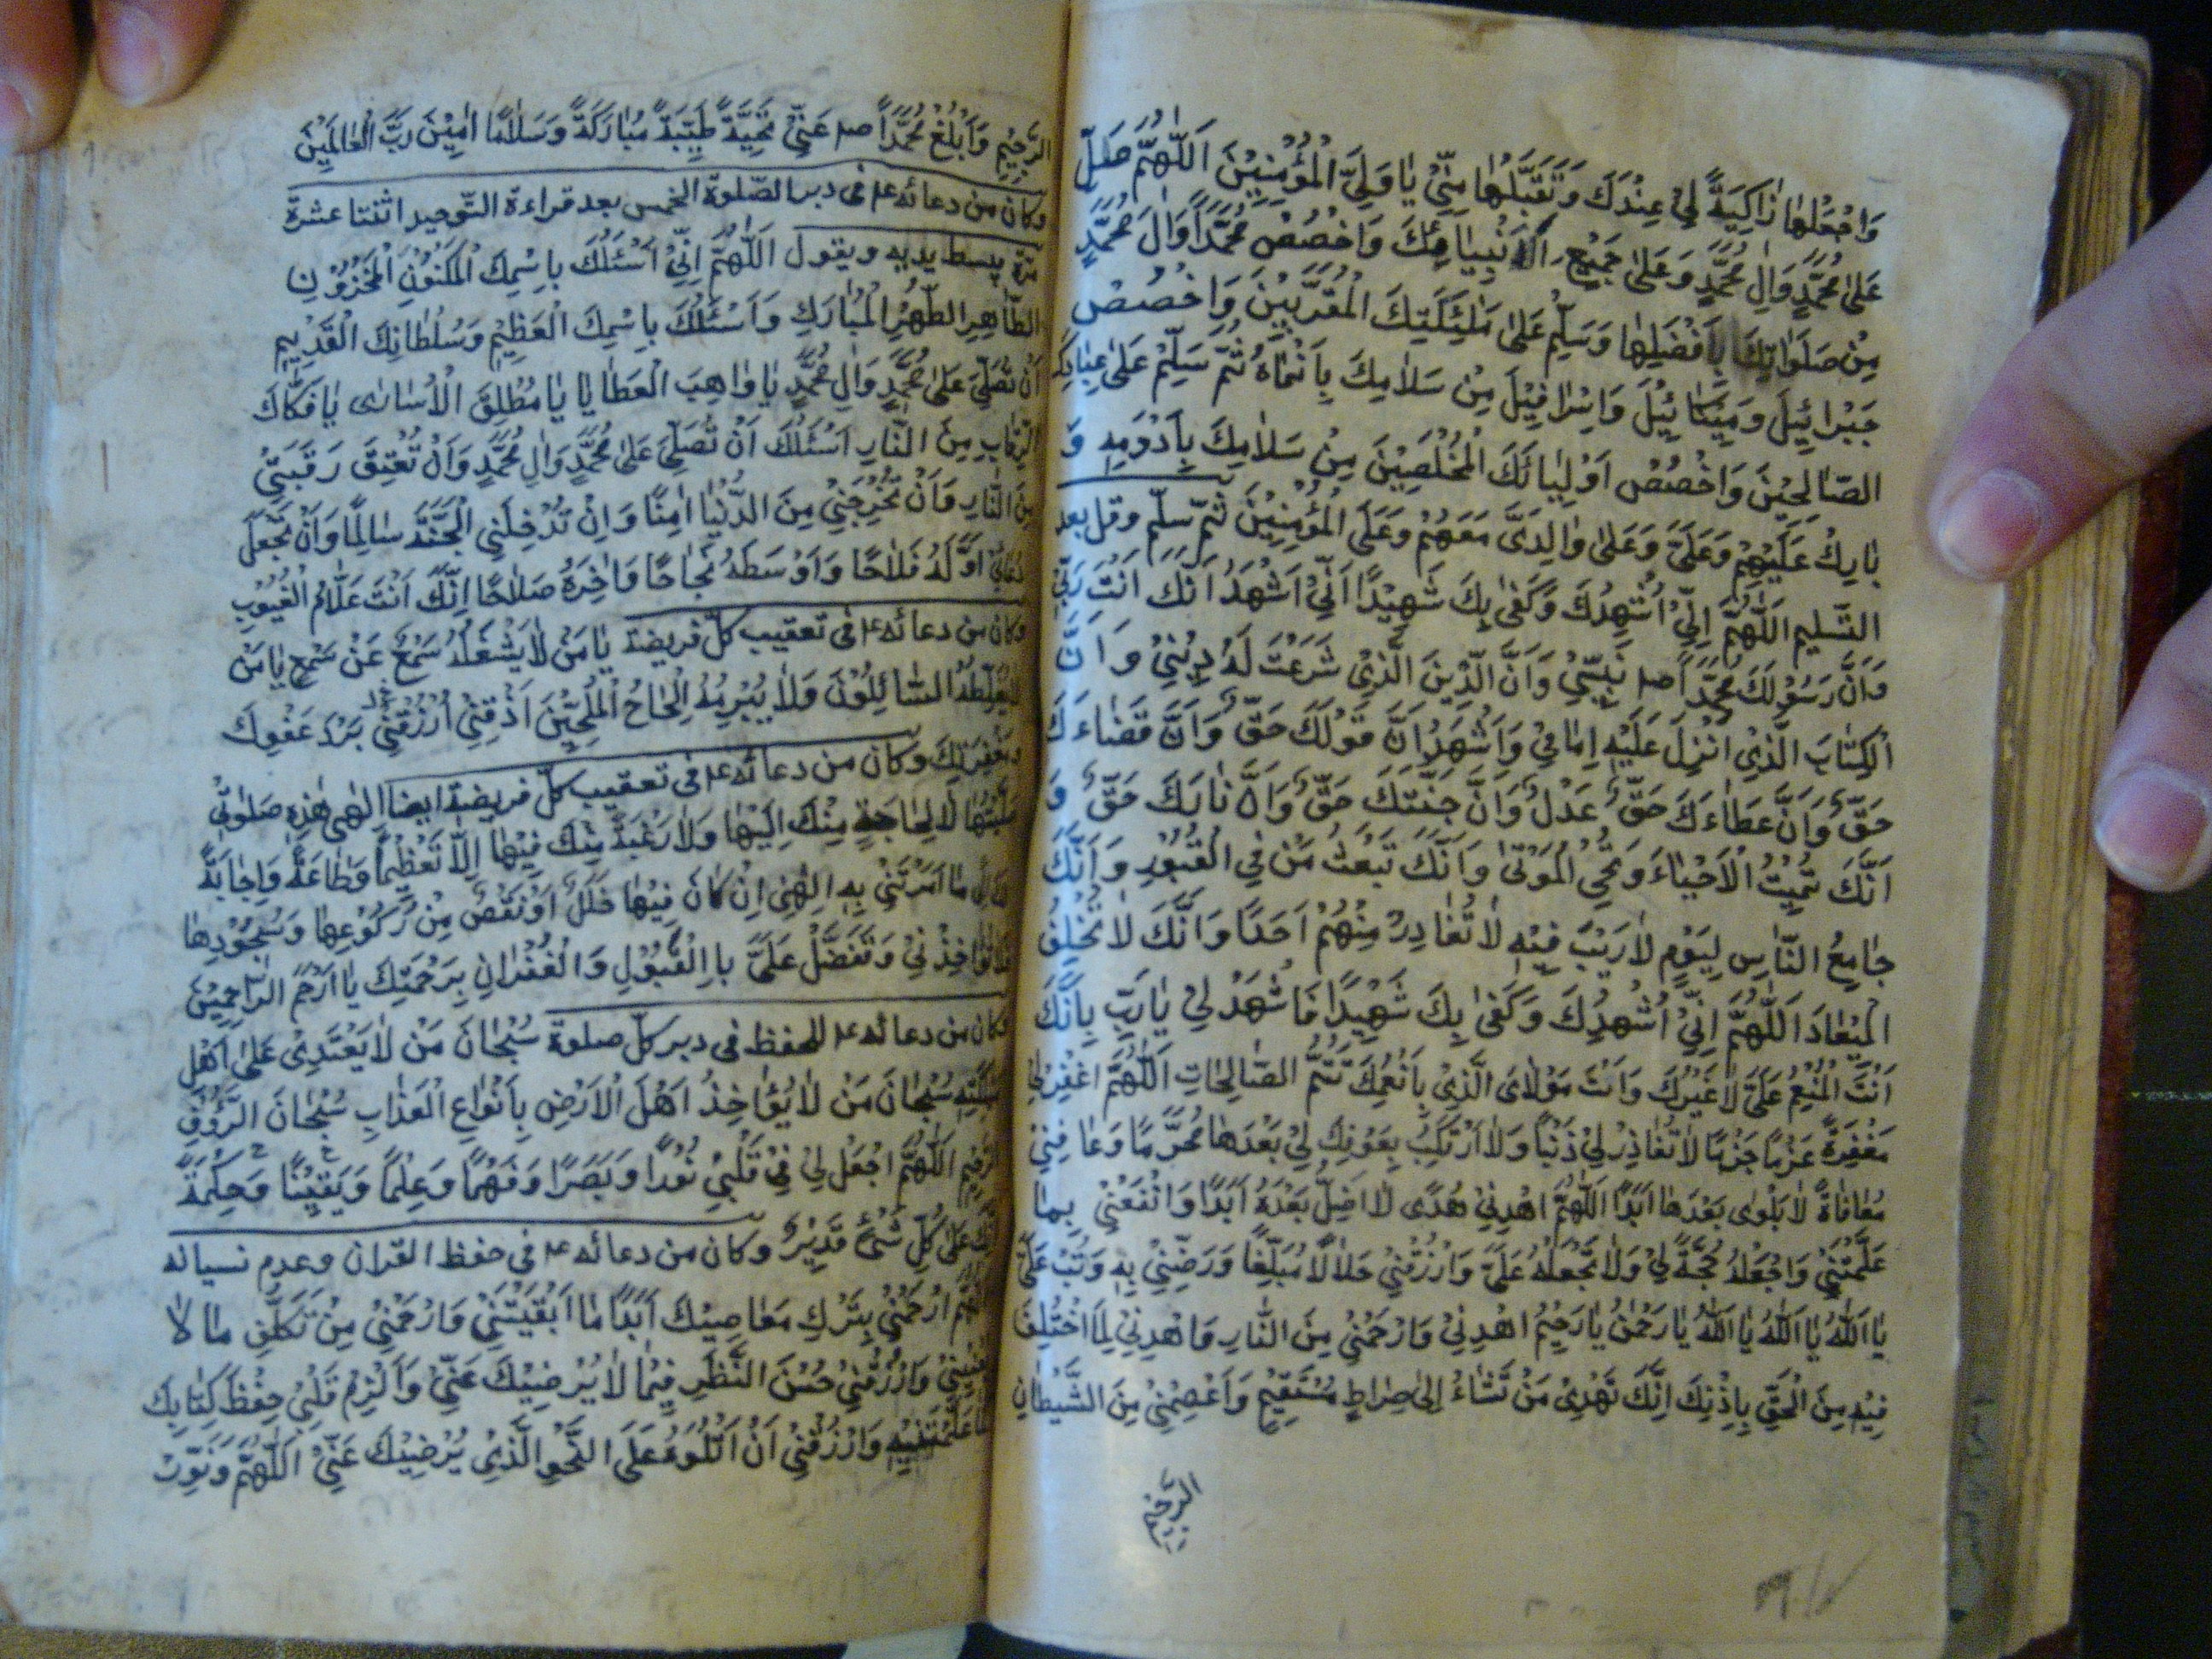 وَاجْعَلْهَا زَاكِيَةً لِيْ عِنْدَكَ وَتَقَبَّلْهَا مِنِّيْ يَا وَلِيَّ الْمُؤْمِنِيْنَ اَللّٰهُمَّ صَلِّ
عَلٰى مُحَمَّدٍ وَاٰلِ مُحَمَّدٍ وَعَلٰى جَمِيْعِ اَنْبِيَائِكَ وَاخْصُصْ مُحَمَّدًا وَاٰلَ مُحَمَّدٍ
مِنْ صَلَوَاتِكَ بِاَفْضَلِهَا وَسَلِّمْ عَلٰى مَلٰئِكَتِكَ الْمُقَرَّبِيْنَ وَاخْصُصْ
جَبْرَائِيْلَ وَمِيْكَائِيْلَ وَاِسْرَافِيْلَ مِنْ سَلَامِكَ بِاَنْمَاهُ ثُمَّ سَلِّمْ عَلٰى عِبَادِكَ
الصَّالِحِيْنَ وَاخْصُصْ اَوْلِيَائَكَ الْمُخْلَصِيْنَ مِنْ سَلَامِكَ بِاَدْوَمِهِ وَ
بَارِكْ عَلَيْهِمْ وَعَلَيَّ وَعَلٰى وَالِدَيَّ مَعَهُمْ وَعَلَى الْمُؤْمِنِيْنَ ثمّ سلّم وقل بعد
التّسليم اَللّٰهُمَّ اِنِّيْ اُشْهِدُكَ وَكَفٰى بِكَ شَهِيْدًا اَنِّيْ اَشْهَدُ اَنَّكَ اَنْتَ رَبِّيْ
وَاَنَّ رَسُوْلَكَ مُحَمَّدًا صم نَبِيِّيْ وَاَنَّ الدِّيْنَ الَّذِيْ شَرَعْتَ لَهُ دِيْنِيْ وَاَنَّ
الْكِتَابَ الَّذِيْ اُنْزِلَ عَلَيْهِ اِمَامِيْ وَاَشْهَدُ اَنَّ قَوْلَكَ حَقٌّ وَاَنَّ قَضَاءَكَ
حَقٌّ وَاَنَّ عَطَاءَكَ حَقٌّ عَدْلٌ وَاَنَّ جَنَّتَكَ حَقٌّ وَاَنَّ نَارَكَ حَقٌّ وَ
اَنَّكَ تُمِيْتُ الْاَحْيَاءَ وَتُحْيِي الْمَوْتٰى وَاَنَّكَ تَبْعَثُ مَنْ فِي الْقُبُوْرِ وَاَنَّكَ
جَامِعُ النَّاسِ لِيَوْمٍ لَا رَيْبَ فِيْهِ لَا تُغَادِرُ مِنْهُمْ اَحَدًا وَاَنَّكَ لَا تُخْلِفُ
الْمِيْعَادَ اَللّٰهُمَّ اِنِّيْ اُشْهِدُكَ وَكَفٰى بِكَ شَهِيْدًا فَاشْهَدْ لِيْ يَا رَبِّ بِاَنَّكَ
اَنْتَ الْمُنْعِمُ عَلَيَّ لَا غَيْرُكَ وَاَنْتَ مَوْلَايَ الَّذِيْ بِاَنْعُمِكَ تَتِمُّ الصَّالِحَاتِ اَللّٰهُمَّ اغْفِرْ لِيْ
مَغْفِرَةً عَزْمًا جَزْمًا لَا تُغَادِرُ لِيْ ذَنْبًا وَلَا اَرْتَكِبُ بِعَوْنِكَ لِيْ بَعْدَهَا مُحَرَّمًا وَعَافِنِيْ
مُعَافَاةً لَا بَلْوٰى بَعْدَهَا اَبَدًا اَللّٰهُمَّ اهْدِنِيْ هُدًى لَا اَضِلُّ بَعْدَهُ اَبَدًا وَانْفَعْنِيْ بِمَا
عَلَّمْتَنِيْ وَاجْعَلْهُ حُجَّةً لِيْ وَلَا تَجْعَلْهُ عَلَيَّ وَارْزُقْنِيْ حَلَالًا مُبَلِّغًا وَرَضِّنِيْ بِهِ وَتُبْ عَلَيَّ
يَا اَللّٰهُ يَا اَللّٰهُ يَا اَللّٰهُ يَا رَحْمٰنُ يَا رَحِيْمُ اهْدِنِيْ وَارْحَمْنِيْ مِنَ النَّارِ وَاهْدِنِيْ لِمَا اخْتُلِفَ
فِيْهِ مِنَ الْحَقِّ بِاِذْنِكَ اِنَّكَ تَهْدِيْ مَنْ تَشَاءُ اِلٰى صِرَاطٍ مُسْتَقِيْمٍ وَاعْصِمْنِيْ مِنَ الشَّيْطَانِ
الرَّجِيْمِ
الرَّجِيْمِ وَاَبْلِغْ مُحَمَّدًا صم عَنِّيْ تَحِيَّةً طَيِّبَةً مُبَارَكَةً وَسَلَامًا اٰمِيْنَ رَبَّ الْعَالَمِيْنَ
وكان من دعائه ع فى دبر الصّلوة الخمس بعد قراءة التّوحيد اثنتا عشرة
مرّة يبسط يديه ويقول اَللّٰهُمَّ اِنِّيْ اَسْئَلُكَ بِاسْمِكَ الْمَكْنُوْنِ الْمَخْزُوْنِ
الطَّاهِرِ الطُّهْرِ الْمُبَارَكِ وَاَسْئَلُكَ بِاسْمِكَ الْعَظِيْمِ وَسُلْطَانِكَ الْقَدِيْمِ
اَنْ تُصَلِّيَ عَلٰى مُحَمَّدٍ وَاٰلِ مُحَمَّدٍ يَا وَاهِبَ الْعَطَايَا يَا مُطْلِقَ الْاُسَارٰى يَا فَكَّاكَ
الرِّقَابِ مِنَ النَّارِ اَسْئَلُكَ اَنْ تُصَلِّيَ عَلٰى مُحَمَّدٍ وَاٰلِ مُحَمَّدٍ وَاَنْ تُعْتِقَ رَقَبَتِيْ
مِنَ النَّارِ وَاَنْ تُخْرِجَنِيْ مِنَ الدُّنْيَا اٰمِنًا وَاَنْ تُدْخِلَنِي الْجَنَّةَ سَالِمًا وَاَنْ تَجْعَلَ
دُعَائِيْ اَوَّلَهُ فَلَاحًا وَاَوْسَطَهُ نَجَاحًا وَاٰخِرَهُ صَلَاحًا اِنَّكَ اَنْتَ عَلَّامُ الْغُيُوْبِ
وكان من دعائه ع فى تعقيب كلّ فريضة يَا مَنْ لَا يَشْغَلُهُ سَمْعٌ عَنْ سَمْعٍ يَا مَنْ
يُغَلِّطُهُ السَّائِلُوْنَ وَلَا يُبْرِمُهُ اِلْحَاحُ الْمُلِحِّيْنَ اَذِقْنِيْ اُرْزُقْنِيْ بَرْدَ عَفْوِكَ
وكان من دعائه ع فى تعقيب كلّ فريضة ايضا الٰهى هٰذِهِ صَلٰوتِيْ
صَلَّيْتُهَا لَا لِحَاجَةٍ مِنْكَ اِلَيْهَا وَلَا رَغْبَةٍ مِنْكَ فِيْهَا اِلَّا تَعْظِيْمًا وَطَاعَةً وَاِجَابَةً
مَا اَمَرْتَنِيْ بِهِ اِلٰهِيْ اِنْ كَانَ فِيْهَا خَلَلٌ اَوْ نَقْصٌ مِنْ رُكُوْعِهَا وَسُجُوْدِهَا
فَلَا تُؤَاخِذْنِيْ وَتَفَضَّلْ عَلَيَّ بِالْقَبُوْلِ وَالْغُفْرَانِ بِرَحْمَتِكَ يَا اَرْحَمَ الرَّاحِمِيْنَ
وكان من دعائه ع للحفظ فى دبر كلّ صلوة سُبْحَانَ مَنْ لَا يَعْتَدِيْ عَلٰى اَهْلِ
مَمْلَكَتِهِ سُبْحَانَ مَنْ لَا يُؤَاخِذُ اَهْلَ الْاَرْضِ بِاَنْوَاعِ الْعَذَابِ سُبْحَانَ الرَّؤُوْفِ
الرَّحِيْمِ اَللّٰهُمَّ اجْعَلْ لِيْ فِيْ قَلْبِيْ نُوْرًا وَبَصَرًا وَفَهْمًا وَعِلْمًا وَيَقِيْنًا وَحِكْمَةً
عَلٰى كُلِّ شَيْءٍ قَدِيْرٌ وكان من دعائه ع فى حفظ القران وعدم نسيانه
اَللّٰهُمَّ ارْحَمْنِيْ بِتَرْكِ مَعَاصِيْكَ اَبَدًا مَا اَبْقَيْتَنِيْ وَارْحَمْنِيْ مِنْ تَكَلُّفِ مَا لَا
يَعْنِيْنِيْ وَارْزُقْنِيْ حُسْنَ النَّظَرِ فِيْمَا لَا يُرْضِيْكَ عَنِّيْ وَاَلْزِمْ قَلْبِيْ حِفْظَ كِتَابِكَ
كَمَا عَلَّمْتَنِيْهِ وَارْزُقْنِيْ اَنْ اَتْلُوَهُ عَلَى النَّحْوِ الَّذِيْ يُرْضِيْكَ عَنِّيْ اَللّٰهُمَّ وَنَوِّرْ